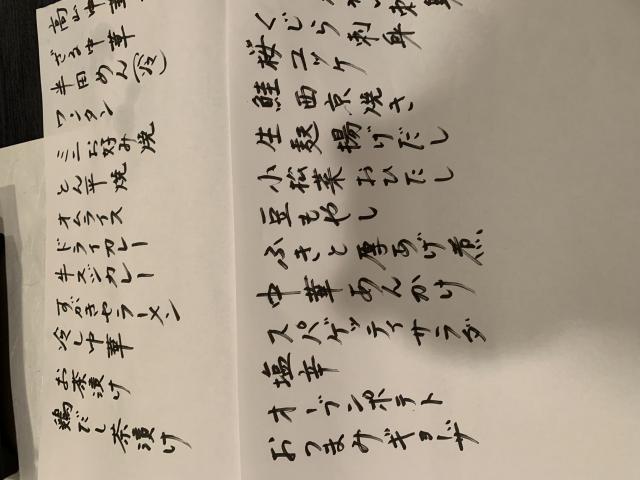 くじら刺身
桜ユッケ
鮭西京焼き
生麩揚げだし
小松菜おひたし
豆もやし
ふきと厚あげ煮
中華あんかけ
スパゲッティサラダ
塩辛
オーブンポテト
おつまみギョーザ
高山中華
ざる中華
半田めん(冷)
ワンタン
ミニお好み焼
とん平焼
オムライス
ドライカレー
牛スジカレー
すがきやラーメン
冷し中華
お茶漬け
鶏だし茶漬け